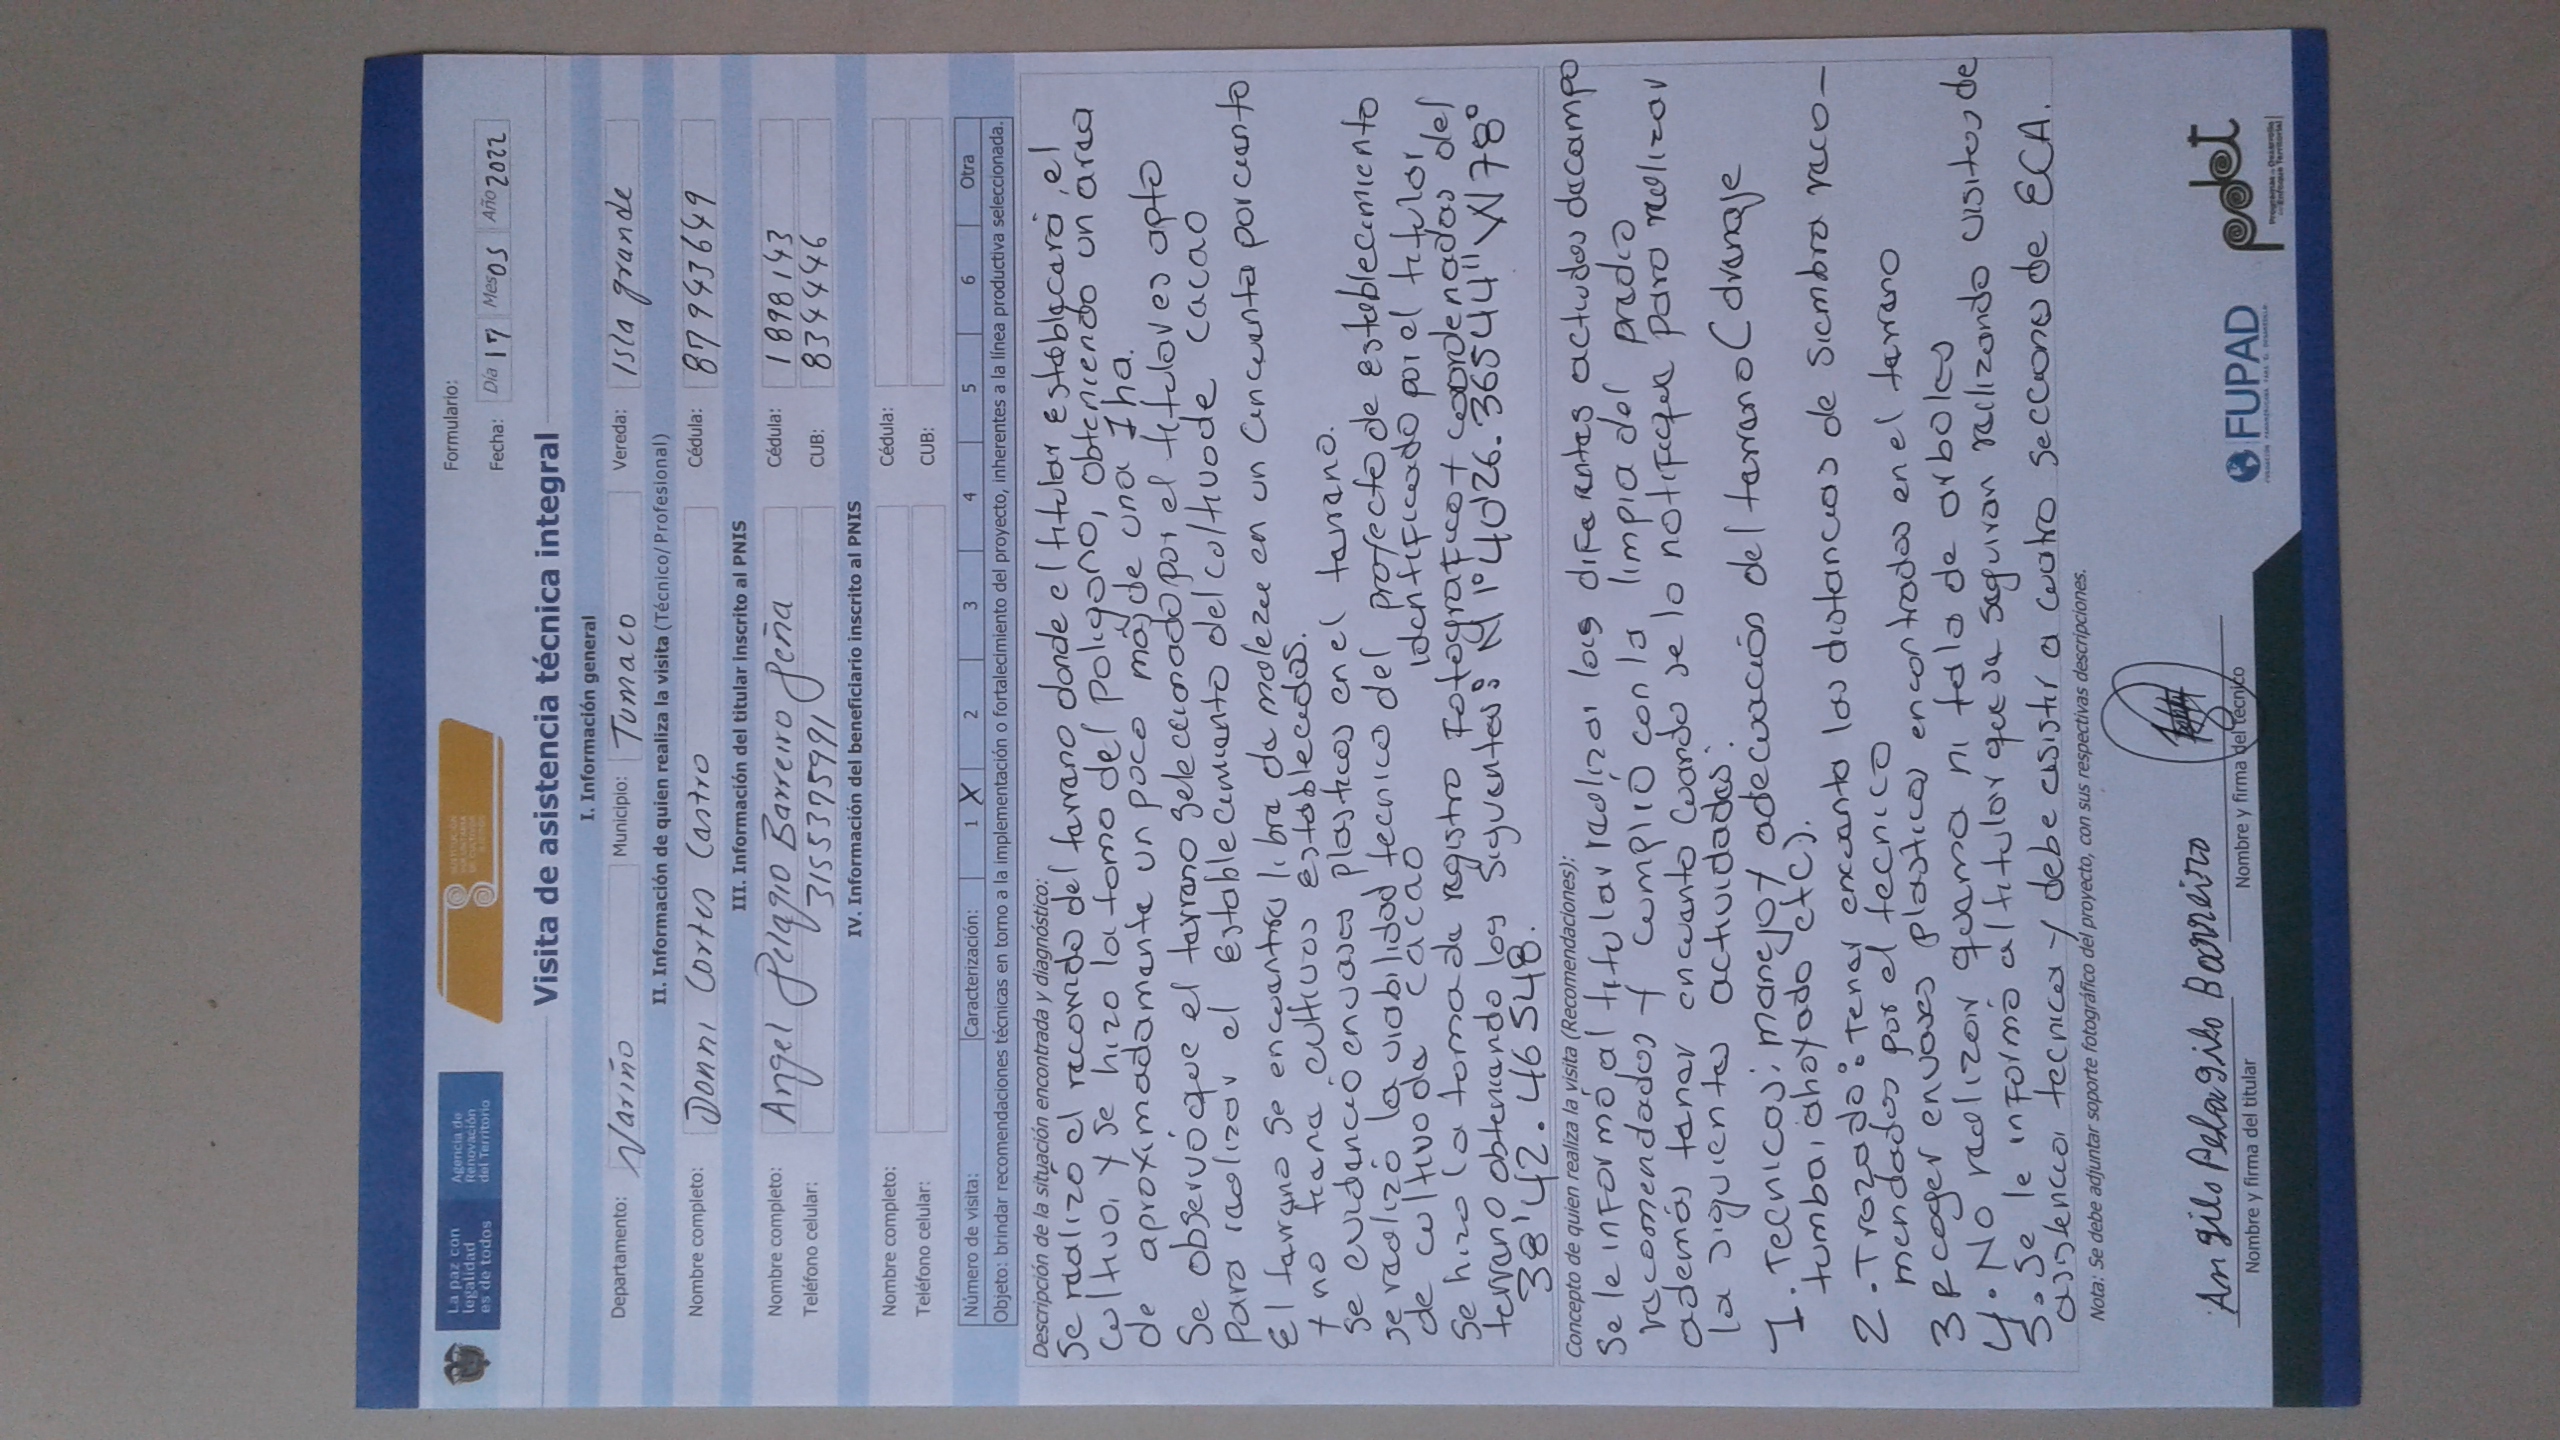 La paz con
legalidad
es de todos
Agencia de
Renovación
del Territorio
SUSTITUCIÓN
VOLUNTARIA
DE CULTIVOS
ILÍCITOS
Formulario:
Fecha: Día 17 Mes 05 Año 2022
Visita de asistencia técnica integral
I. Información general
Departamento: Nariño Municipio: Tumaco Vereda: Isla grande
II. Información de quien realiza la visita (Técnico/Profesional)
Nombre completo: Donni Cortes Castro Cédula: 87943649
III. Información del titular inscrito al PNIS
Nombre completo: Angel Pelagio Barreiro Peña Cédula: 1898143
Teléfono celular: 3155375991 CUB: 8344446
IV. Información del beneficiario inscrito al PNIS
Nombre completo: Cédula:
Teléfono celular: CUB:
Número de visita: Caracterización: 1 X 2 3 4 5 6 Otra
Objeto: brindar recomendaciones técnicas en torno a la implementación o fortalecimiento del proyecto, inherentes a la línea productiva seleccionada.
Descripción de la situación encontrada y diagnóstico:
Se realizó el recorrido del terreno donde el titular establecerá el
cultivo, y se hizo la toma del poligono, obteniendo un área
de aproximadamente un poco más de una 1 ha.
Se observó que el terreno seleccionado por el titular es apto
para realizar el establecimiento del cultivo de cacao
El terreno se encuentra libra de maleza en un cincuenta por ciento
y no tiene cultivos establecidos.
Se evidenció envases plasticos en el terreno.
se realizó la viabilidad tecnica del proyecto de establecimiento
de cultivo de cacao identificado por el titular
Se hizo la toma de registro fotografico y coordenadas del
terreno obteniendo las siguientes: N 1°40'26.36544" W 78°
38'42.46548.
Concepto de quien realiza la visita (Recomendaciones):
Se le informó al titular realizar las diferentes actividades de campo
recomendadas y cumplió con la limpia del predio
además tener encuenta cuando se lo notifique para realizar
la siguientes actividades:
1. Tecnicas; manejo y adecuación del terreno (drenaje
tumba, ahoyado etc).
2. Trazado: tener encuenta las distancias de siembra reco-
mendadas por el tecnico
3 Recoger envases plasticos encontrados en el terreno
4. No realizar quema ni tala de arboles
5. Se le informó al titular que se seguiran realizando visitas de
asistencia tecnica y debe asistir a cuatro secciones de ECA.
Nota: Se debe adjuntar soporte fotográfico del proyecto, con sus respectivas descripciones.
Angilo Pelagibo Barreiro
Nombre y firma del titular
Nombre y firma del técnico
FUPAD
pdet
Programas de Desarrollo
con Enfoque Territorial